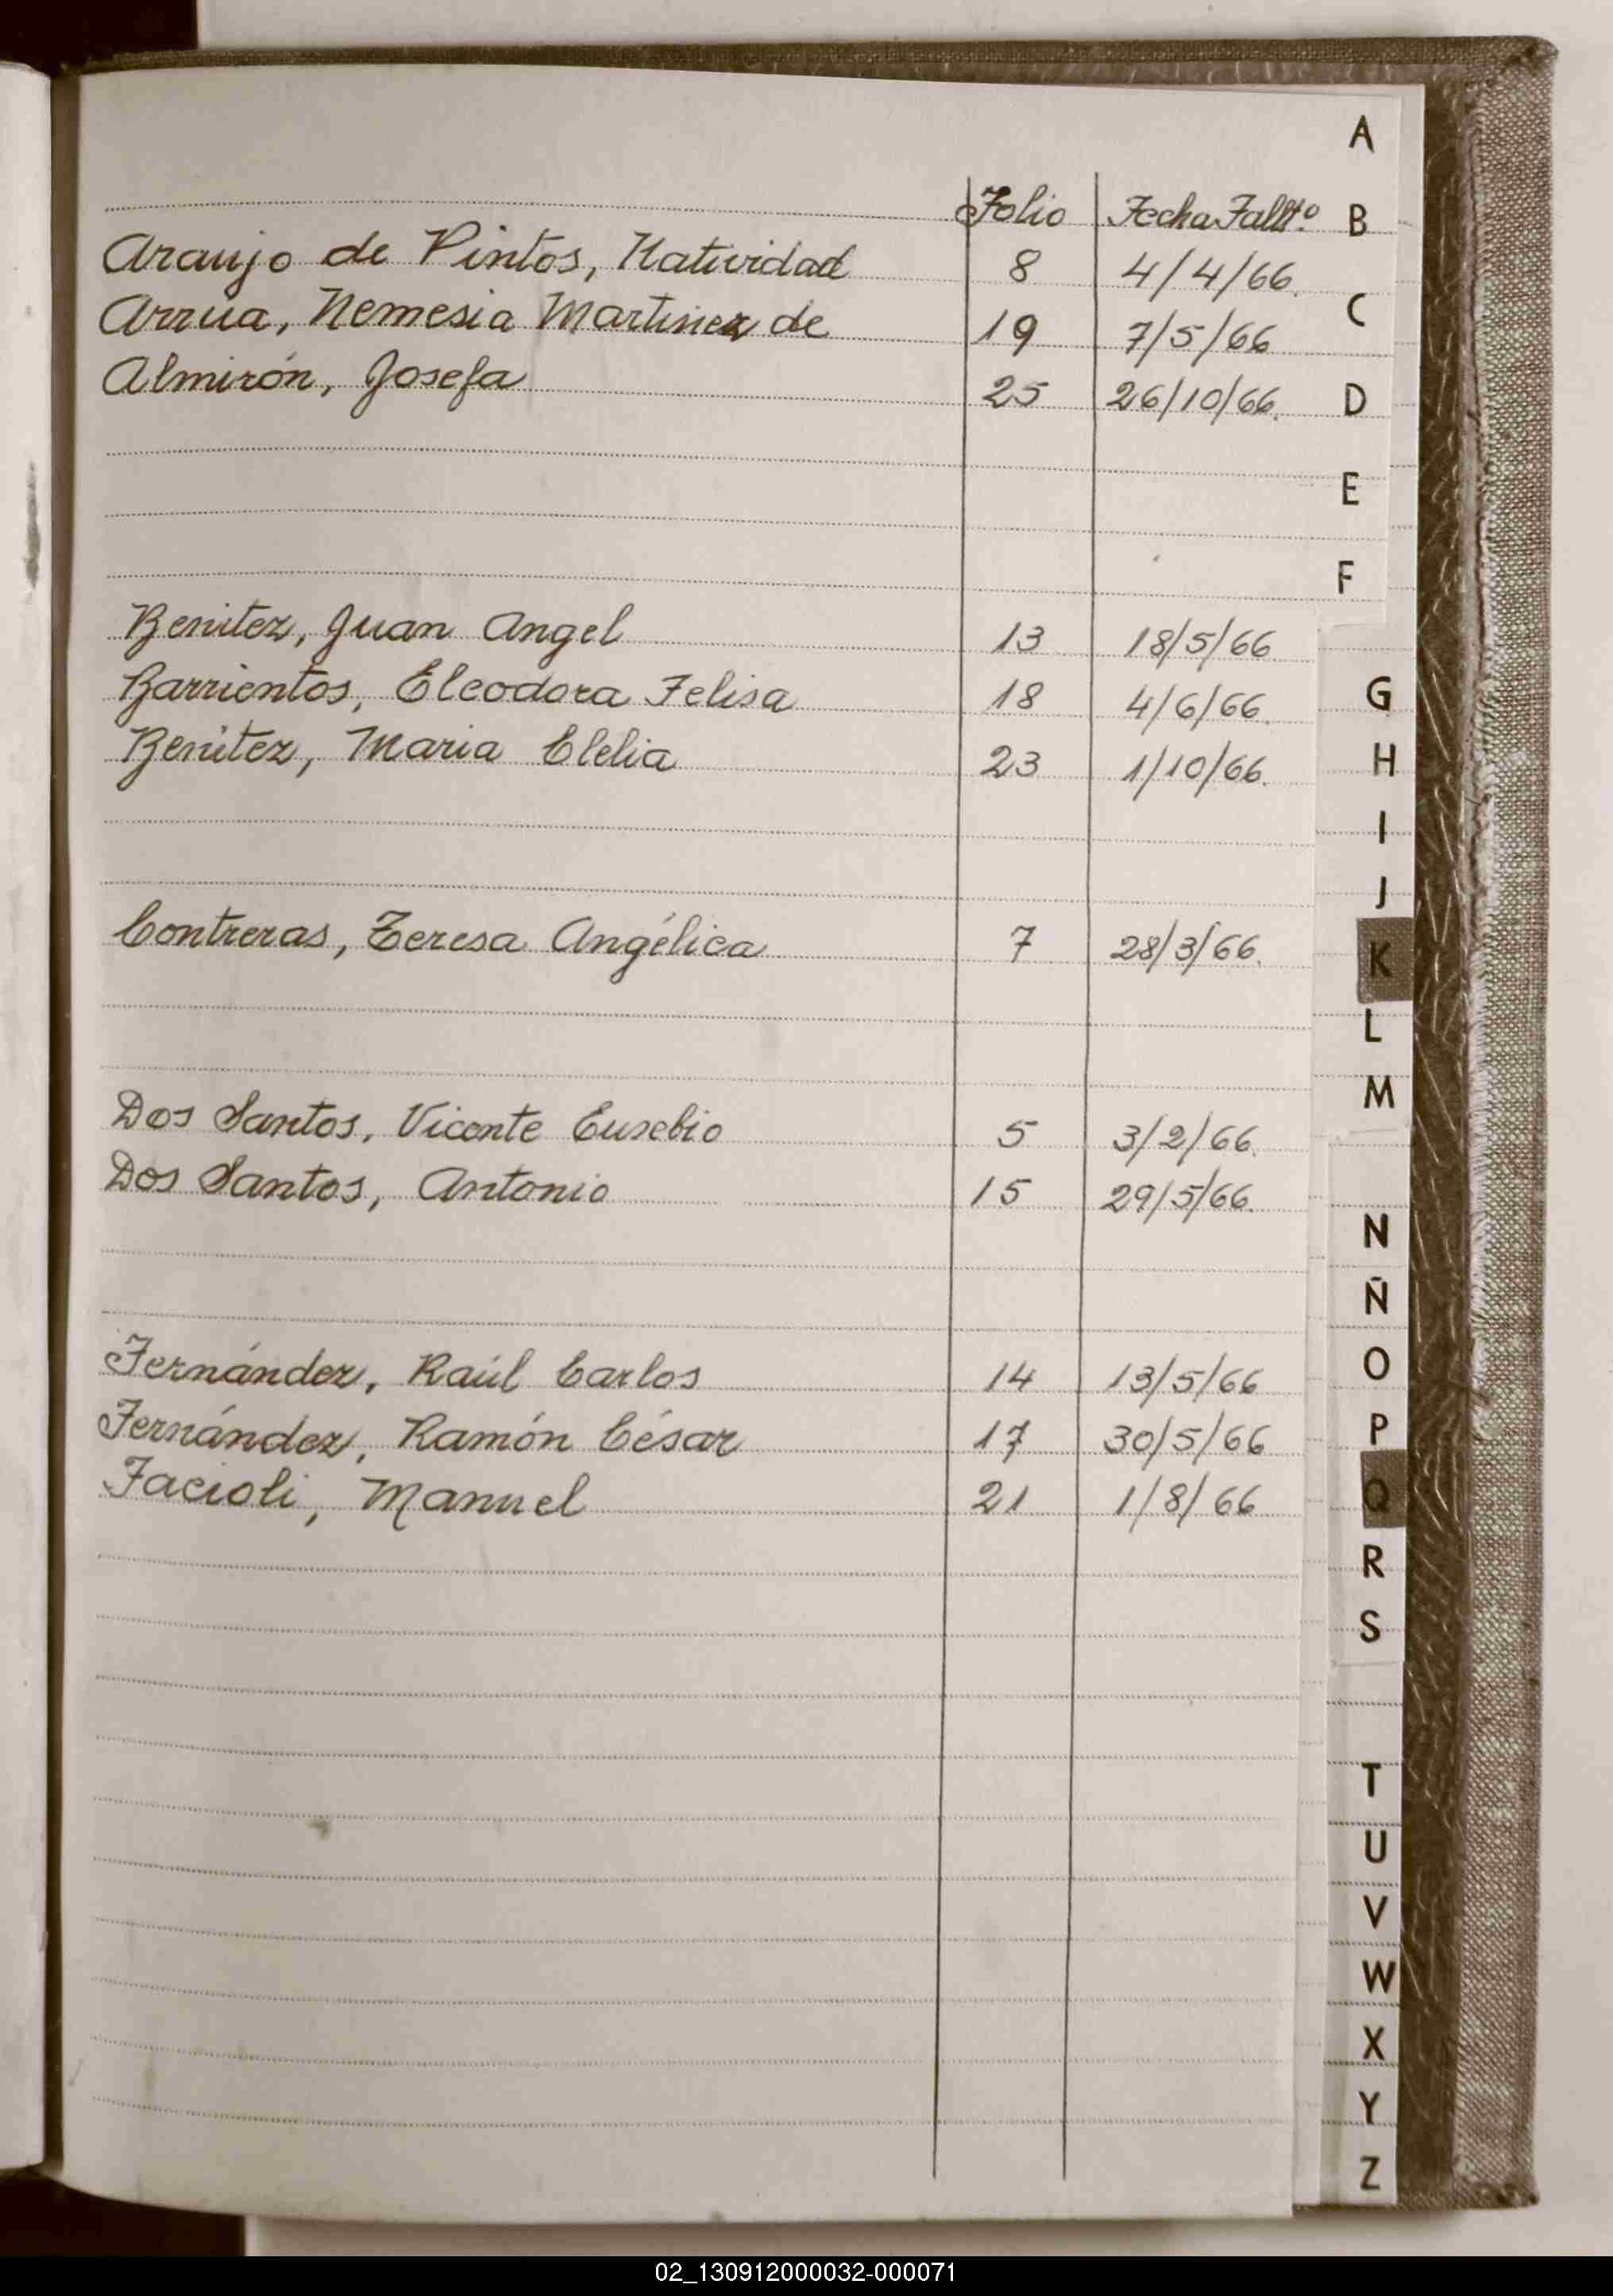 Folio Fecha Fallto.
Araujo de Pintos, Natividad 8 4/4/66.
Arrúa, Nemesia Martinez de 19 7/5/66
Almirón, Josefa 25 26/10/66.
Benitez, Juan Angel 13 18/5/66
Barrientos, Eleodora Felisa 18 4/6/66.
Benitez, Maria Clelia 23 1/10/66.
Contreras, Teresa Angélica 7 28/3/66.
Dos Santos, Vicente Eusebio 5 3/2/66.
Dos Santos, Antonio 15 29/5/66.
Fernández, Raúl Carlos 14 13/5/66
Fernández, Ramón César 17 30/5/66
Facioli, Manuel 21 1/8/66
A
B
C
D
E
F
G
H
I
J
K
L
M
N
Ñ
O
P
Q
R
S
T
U
V
W
X
Y
Z
02_130912000032-000071